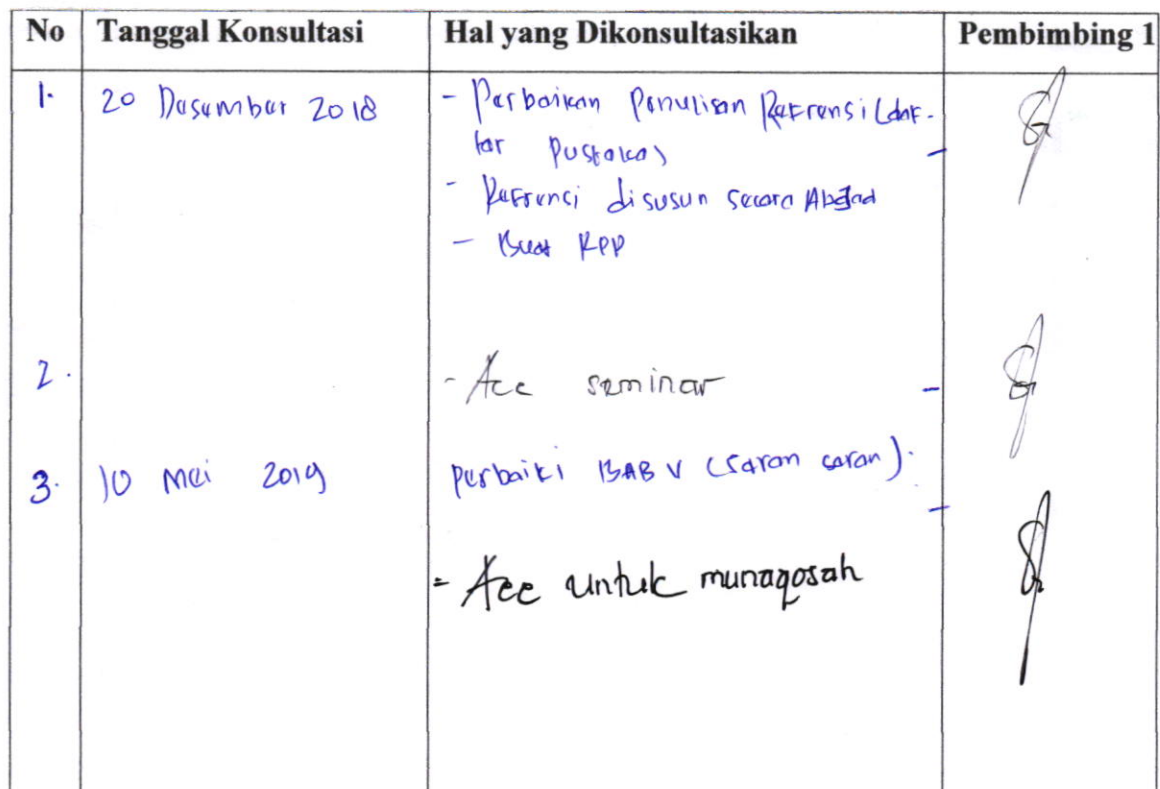 No Tanggal Konsultasi Hal yang Dikonsultasikan Pembimbing 1
1. 20 Desember 2018 - Perbaikan Penulisan Refrensi (daf-
tar Pustaka)
- Refrensi disusun secara Abjad
- Buat RPP
2. - Acc seminar
3. 10 Mei 2019 Perbaiki BAB V (saran saran).
- Acc untuk munaqosah